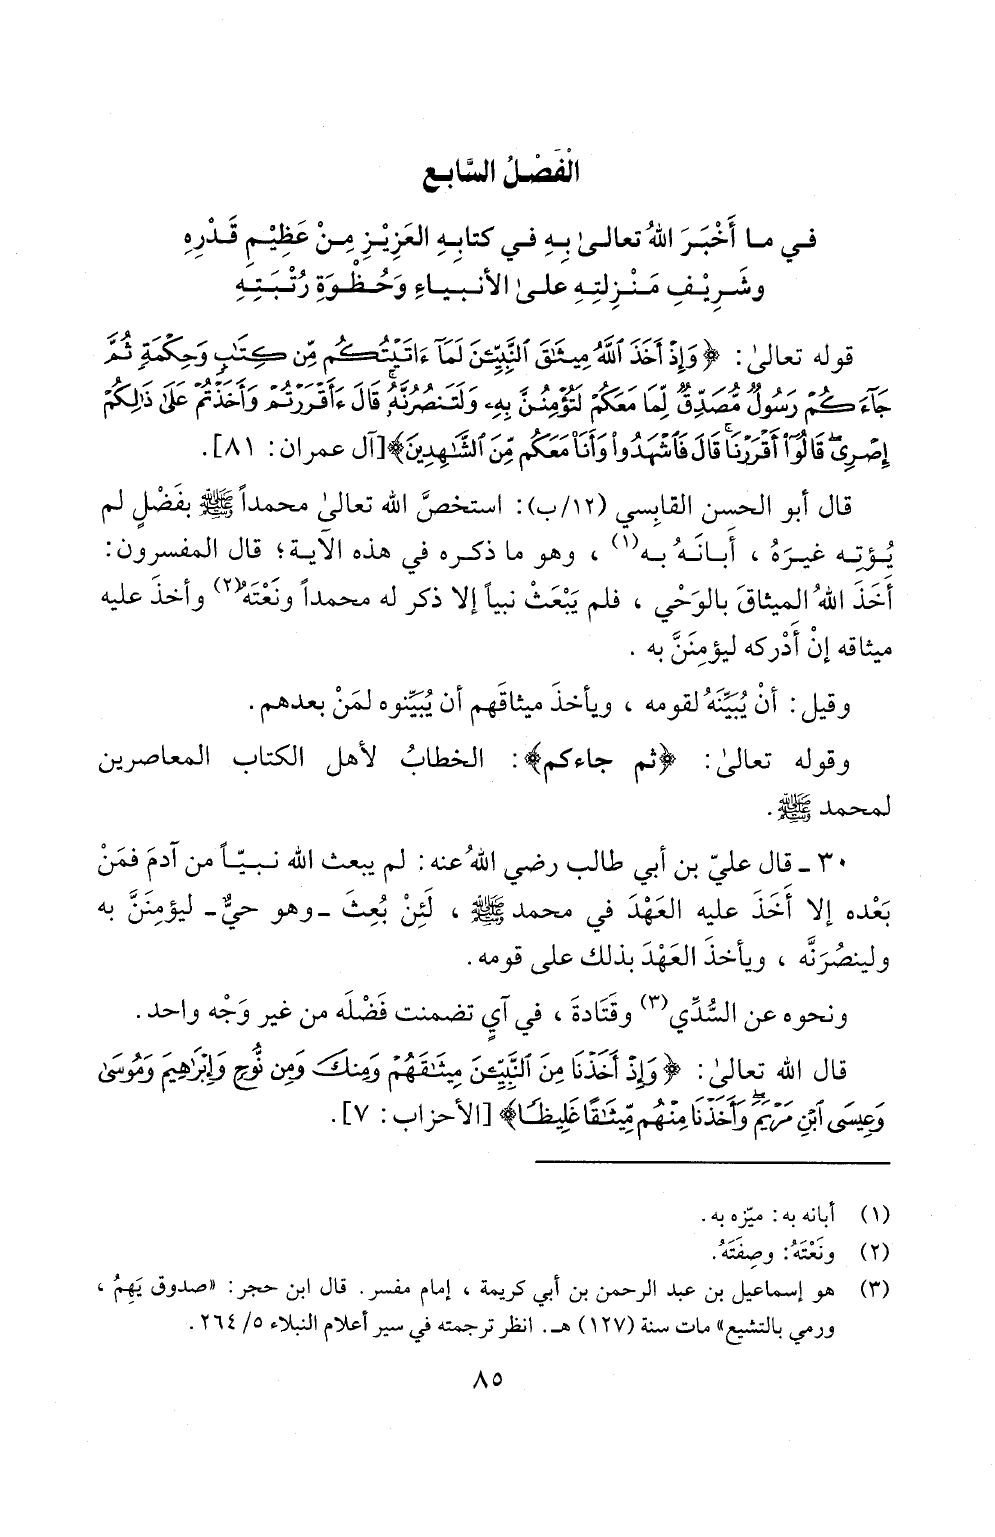 الْفَصْلُ السَّابع
في ما أَخْبَرَ اللهُ تعالىٰ بِهِ في كتابِهِ العَزِيْزِ مِنْ عَظِيْمِ قَدْرِهِ
وشَرِيْفِ مَنْزِلتِهِ علىٰ الأنبياءِ وَحُظْوَةِ رُتْبَتِهِ
قوله تعالىٰ: ﴿وَإِذْ أَخَذَ ٱللَّهُ مِيثَٰقَ ٱلنَّبِيِّـۧنَ لَمَآ ءَاتَيْتُكُم مِّن كِتَٰبٍ وَحِكْمَةٍ ثُمَّ
جَآءَكُمْ رَسُولٌ مُّصَدِّقٌ لِّمَا مَعَكُمْ لَتُؤْمِنُنَّ بِهِۦ وَلَتَنصُرُنَّهُۥۚ قَالَ ءَأَقْرَرْتُمْ وَأَخَذْتُمْ عَلَىٰ ذَٰلِكُمْ
إِصْرِىۖ قَالُوٓا۟ أَقْرَرْنَاۚ قَالَ فَٱشْهَدُوا۟ وَأَنَا۠ مَعَكُم مِّنَ ٱلشَّٰهِدِينَ﴾[آل عمران: ٨١].
قال أبو الحسن القابِسي (١٢/ب): استخصَّ الله تعالىٰ محمداً ﷺ بفَضْلٍ لم
يُؤتِه غيرَهُ ، أَبانَهُ به(١) ، وهو ما ذكره في هذه الآية؛ قال المفسرون:
أَخَذَ اللهُ الميثاقَ بالوَحْي ، فلم يَبْعَثْ نبياً إلا ذكر له محمداً ونَعْتَهُ(٢) وأخذَ عليه
ميثاقه إنْ أَدْركه ليؤمِنَنَّ به .
وقيل: أنْ يُبَيِّنَهُ لقومه ، ويأخذَ ميثاقَهم أن يُبَيِّنوه لمَنْ بعدهم.
وقوله تعالىٰ: ﴿ثم جاءكم﴾: الخطابُ لأهل الكتاب المعاصرين
لمحمد ﷺ.
٣٠ ـ قال عليّ بن أبي طالب رضي اللهُ عنه: لم يبعث الله نبيّاً من آدمَ فمَنْ
بَعْده إلا أَخَذَ عليه العَهْدَ في محمد ﷺ ، لَئِنْ بُعِثَ ـ وهو حيٌّ ـ ليؤمِنَنَّ به
ولينصُرَنَّه ، ويأخذَ العَهْدَ بذلك على قومه.
ونحوه عن السُّدِّي(٣) وقَتَادةَ ، في آيٍ تضمنت فَضْلَه من غير وَجْه واحد.
قال الله تعالىٰ: ﴿وَإِذْ أَخَذْنَا مِنَ ٱلنَّبِيِّـۧنَ مِيثَٰقَهُمْ وَمِنكَ وَمِن نُّوحٍ وَإِبْرَٰهِيمَ وَمُوسَىٰ
وَعِيسَى ٱبْنِ مَرْيَمَۖ وَأَخَذْنَا مِنْهُم مِّيثَٰقًا غَلِيظًا﴾ [الأحزاب: ٧].
(١) أبانه به: ميّزه به.
(٢) ونَعْتَهُ: وصِفَتَهُ.
(٣) هو إسماعيل بن عبد الرحمن بن أبي كريمة ، إمام مفسر. قال ابن حجر: «صدوق يَهِمُ ،
ورمي بالتشيع» مات سنة (١٢٧) هـ. انظر ترجمته في سير أعلام النبلاء ٥/ ٢٦٤.
٨٥